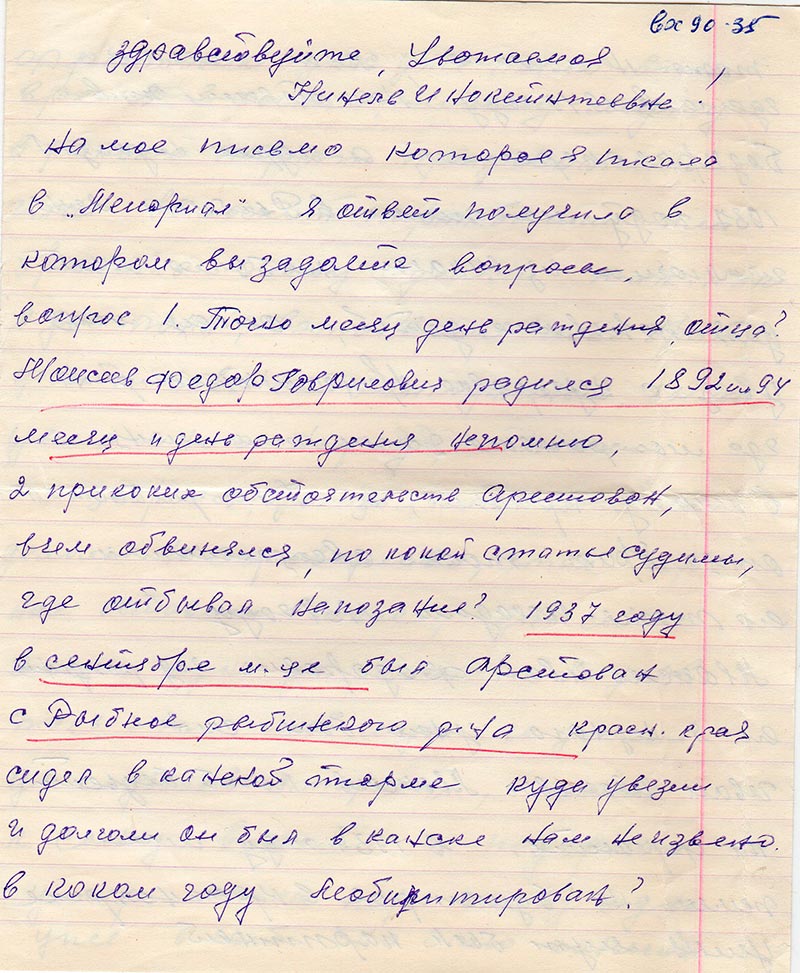 вх 90-35
здравствуйте, Уважаемая,
Нинель Инокентжевна.
на мое писмо которое я писала
в „Мемориал" я ответ получила в
котором вы задаёте вопросы.
вопрос 1. Точно месяц день раждения отца?
Моисеев Федор Гаврилович радился 1892 ил 94
месяц и день раждения непомню,
2 прикоких обстоятельств Арестован,
вчем обвинялся, по какой статье судимы,
где отбывал напозание? 1937 году
в сентябре м-це был Арестован
с Рыбное рыбинского р-на красн. края
сидел в канской тюрме куда увезли
и долголи он был в канске нам неизвесно.
в каком году Реобилитирован?